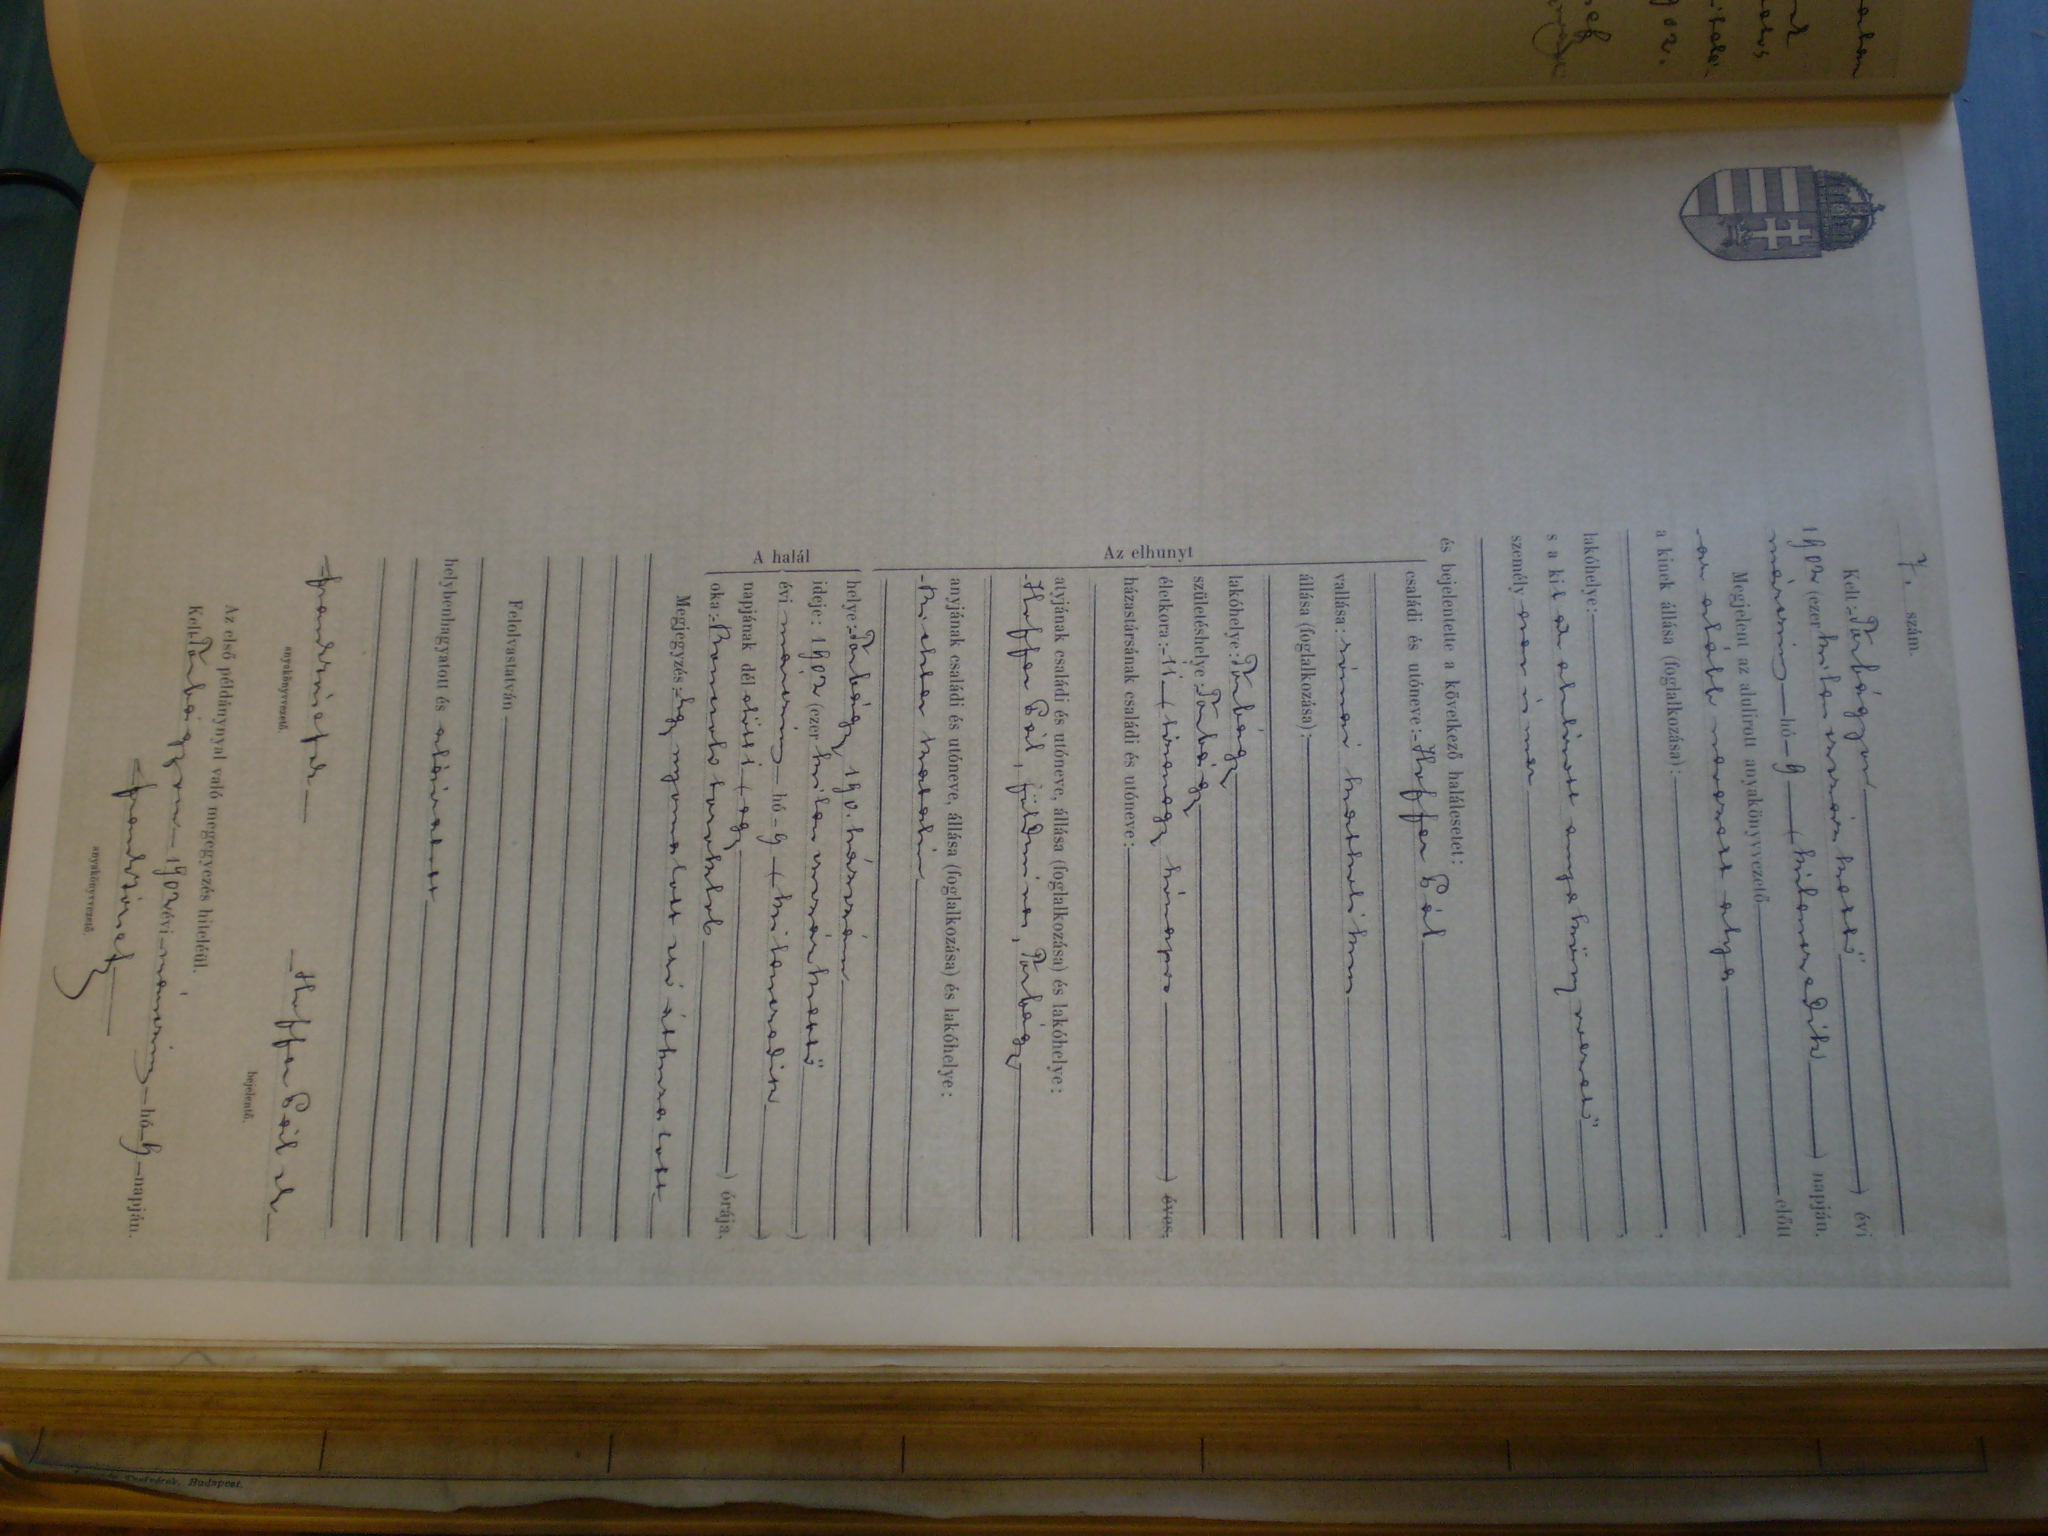 7. szám.
Kelt: Torbágyon
1902 (ezer kilenczszáz kettő) évi
márczius hó 9 (kilenczedik) napján.
Megjelent az alulirott anyakönyvvezető előtt
az alább nevezett atya,
a kinek állása (foglalkozása):
lakóhelye:
s a kit az alulirott anyakönyvvezető
személy szerint ismer
és bejelentette a következő halálesetet:
Az elhunyt
családi és utóneve: Hoffer Pál
vallása: római katholikus
állása (foglalkozása):
lakóhelye: Torbágy
születéshelye: Torbágy
életkora: 11 (tizenegy hónapos) éves.
házastársának családi és utóneve:
atyjának családi és utóneve, állása (foglalkozása) és lakóhelye:
Hoffer Pál, földmives, Torbágy
anyjának családi és utóneve, állása (foglalkozása) és lakóhelye:
Richter Katalin
A halál
helye: Torbágy 190. házszám
ideje: 1902 (ezer kilenczszáz kettő)
évi márczius hó 9 (kilenczedik)
napjának dél előtti 1 (egy) órája.
oka:
Megjegyzés: Egy nyomtatott szó áthuzatott
Felolvastatván
helybenhagyatott és aláiratott
anyakönyvvezető.
Hoffer Pál sk
bejelentő.
Az első példánynyal való megegyezés hiteléül.
Kelt Torbágyon 1902 évi márczius hó 9 napján.
anyakönyvvezető.
1902.
Budapest.